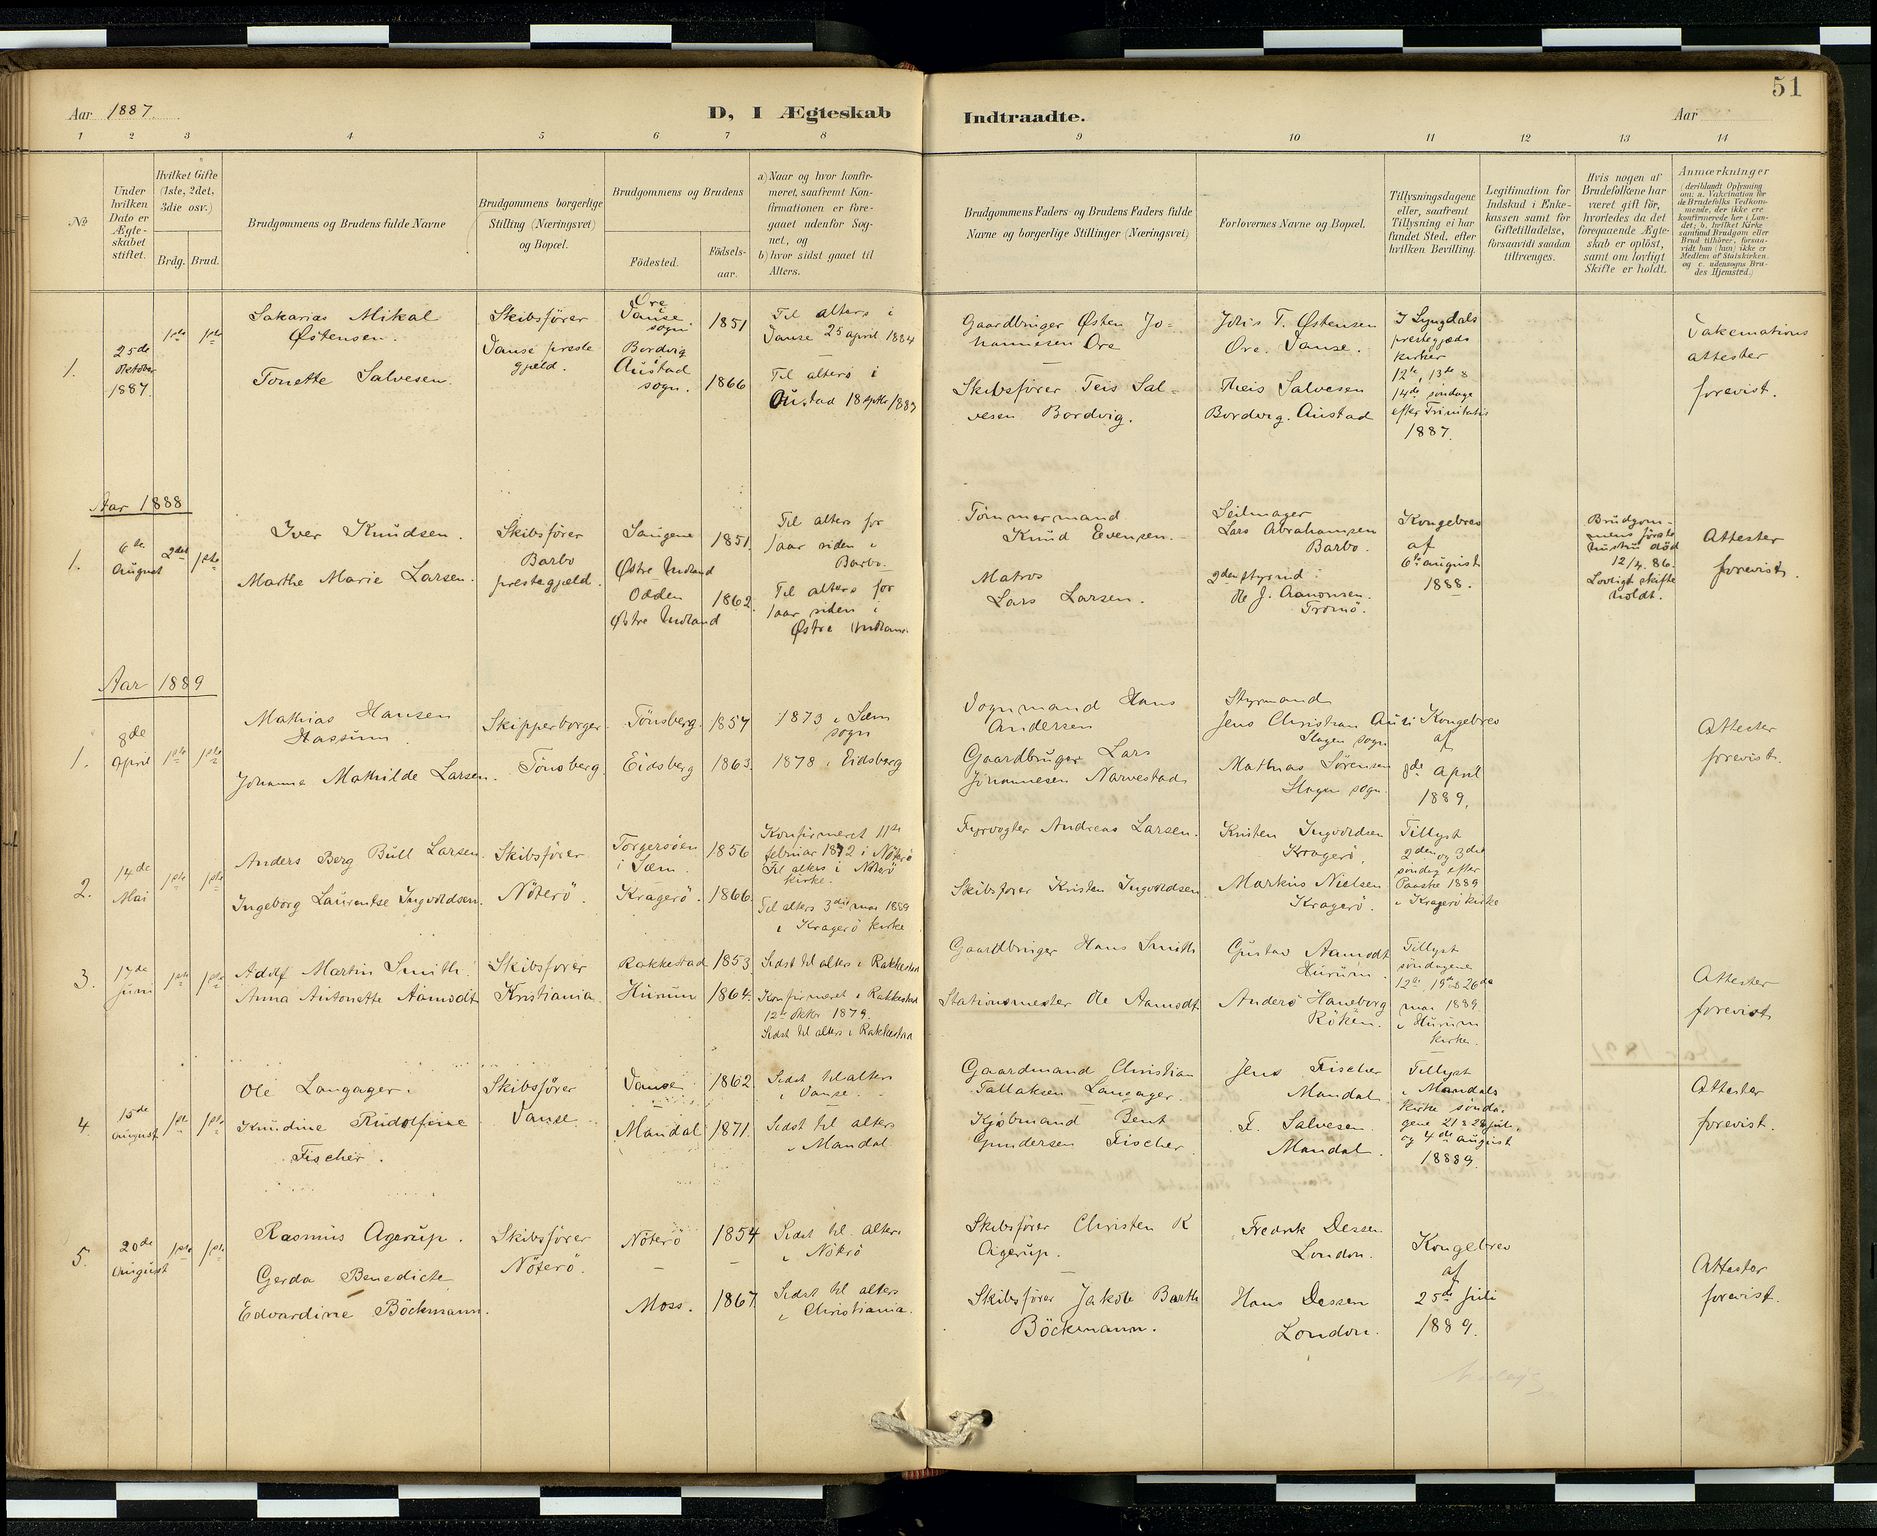 Aar 1887. D, I Ægteskab Indtraadte. Aar 51
1 2 3 4 5 6 7 8 9 10 11 12 13 14
№
Under hvilken Dato er Ægteskabet stiftet.
Hvilket Gifte (1ste, 2det, 3die osv.)
Brdg. Brud.
Brudgommens og Brudens fulde Navne
Brudgommens borgerlige Stilling (Næringsvei) og Bopæl.
Brudgommens og Brudens
Fødested. Fødselsaar.
a) Naar og hvor konfirmeret, saafremt Konfirmationen er foregaaet udenfor Sognet, og
b) hvor sidst gaaet til Alters.
Brudgommens Faders og Brudens Faders fulde Navne og borgerlige Stillinger (Næringsvei)
Forlovernes Navne og Bopæl.
Tillysningsdagene eller, saafremt Tillysning ei har fundet Sted, efter hvilken Bevilling.
Legitimation for Indskud i Enkekassen samt for Giftetilladelse, forsaavidt saadan tiltrænges.
Hvis nogen af Brudefolkene har været gift før, hvorledes da det foregaaende Ægteskab er opløst, samt om lovligt Skifte er holdt.
Anmærkninger
(deriblandt Oplysning om: a. Vakcination for de Brudefolks Vedkommende, der ikke ere konfirmerede her i Landet; b. hvilket Kirkesamfund Brudgom eller Brud tilhører, forsaavidt han (hun) ikke er Medlem af Statskirken, og c. udensogns Brudes Hjemsted.)
1.
25de Oktober 1887.
1ste 1ste
Sakarias Mikal
Østensen.
Tonette Salvesen.
Skibsfører
Vanse preste
gjæld.
Ore
Vanse
sogn
1851
Bordvig
Austad
sogn.
1866
Til alters i
Vanse 25 april 1884
Til alters i
Austad 18 septbr 1883
Gaardbruger Østen Jo-
hannesen Ore
Skibsfører Teis Sal-
vesen Bordvig.
T. Østensen
Ore. Vanse.
Theis Salvesen
Bordvig. Austad
I Lyngdals
prestegjæds
kirker
12te, 13de &
14de søndage
efter Trinitatis
1887.
Vakcinations
attester
forevist.
Aar 1888
1.
6te
August
2det 1ste
Iver Knudsen.
Marthe Marie Larsen.
Skibsfører
Barbo
prestegjeld.
Saugene
Østre Moland
1851.
Odden
Østre Moland
1862.
Til alters for
1 aar siden i
Barbo.
Til alters for
1 aar siden i
Østre Moland
Tømmermand
Knud Evensen.
Matros
Lars Larsen.
Seilmager
Lars Abrahamsen
Barbo.
2den styrmd:
Ole J. Aanonsen.
Tromø.
Kongebrev
af
6te august
1888.
Brudgom-
mens første
hustru død
12/4. 86.
Lovligt skifte
holdt.
Attester
forevist.
Aar 1889
1.
8de
April
1ste 1ste
Mathias Hansen
Hassum.
Johanna Mathilde Larsen.
Skipperborger.
Tønsberg.
Tønsberg. 1857
Eidsberg 1863.
1873 i Sæm
sogn
1878 i Eidsberg
Vognmand Hans
Andersen
Gaardbruger Lars
Johannesen Narvestad
Styrmand
Jens Christian Auli
Slagen sogn
Mathias Sørensen
Slagen sogn.
Kongebrev
af
8de April
1889.
Attester
forevist.
2.
14de
Mai
1ste 1ste
Anders Berg Bull Larsen.
Ingeborg Laurentse Ingvoldsen.
Skibsfører
Nøterø.
Torgersøen
i Sæm.
1856
Kragerø. 1866.
Konfirmeret 11te
februar 1872 i Nøterø
Til alters i Nøterø
kirke.
Til alters 3die mai 1889
i Kragerø kirke
Fyrvogter Andreas Larsen.
Skibsfører Kristen Ingvoldsen
Kristen Ingvoldsen
Kragerø.
Markus Nielsen
Kragerø.
Tillyst
2den og 3die
søndag efter
Paaske 1889
i Kragerø kirke
3.
17de
Juni
1ste 1ste
Adolf Martin Smith.
Anna Antonette Aamodt
Skibsfører
Kristiania.
Rakkestad 1853
Hurum 1864.
Sidst til alters i Rakkestad
Konfirmeret i Rakkestad
12te oktbr 1879.
Sidst til alters i Rakkestad
Gaardbruger Hans Smith
Stationsmester Ole Aamodt
Gustav Aamodt
Hurum.
Anders Haneborg
Røken.
Tillyst
søndagene
12te, 19de & 26de
mai 1889
i Hurum
kirke.
Attester
forevist.
4.
15de
August
1ste 1ste
Ole Langager.
Knudine Rudolfine
Fischer.
Skibsfører
Vanse.
Vanse 1862.
Mandal 1871.
Sidst til alters
i Vanse.
Sidst til alters
i Mandal
Gaardmand Christian
Tallaksen Langager.
Kjøbmand Bent
Gundersen Fischer.
Jens Fischer
Mandal.
F. Salvesen.
Mandal.
Tillyst
i Mandals
kirke sønda-
gene 21 & 28 juli,
og 4de august
18889.
Attester
forevist.
5.
20de
August
1ste 1ste
Rasmus Agerup.
Gerda Benedicte
Edvardine Böckmann.
Skibsfører
Nøterø.
Nøterø 1854
Moss. 1867.
Sidst til alters
i Nøterø
Sidst til alters
i Christiania.
Skibsfører Christen K
Agerup.
Skibsfører Jakob Barth
Böckmann.
Fredrik Dessen
London.
Hans Dessen
London.
Kongebrev
af
25de juli
1889.
Attester
forevist.